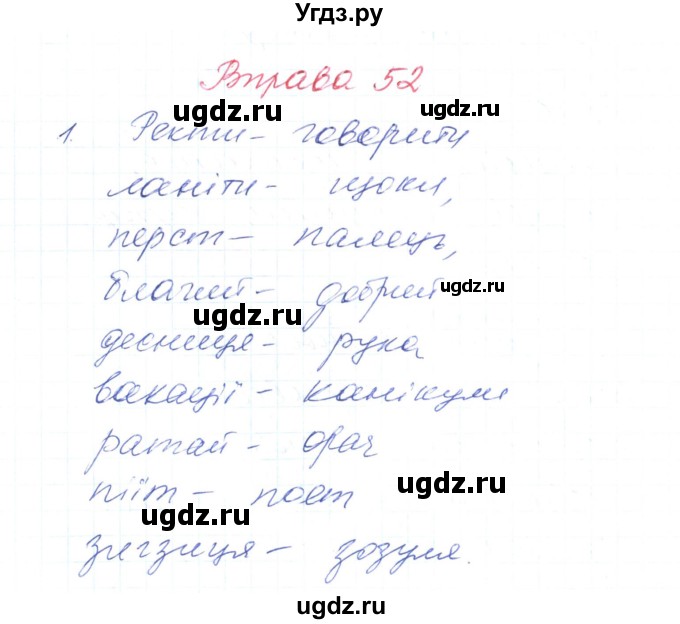 Угдз.ру
Вправа 52
ugdz.ru
1. Ректи - говорити
ugdz.ru
ланіти - щоки,
перст - палець,
благий - добрий
ugdz.ru
ugdz.ru
десниця - рука
вакації - канікули
ратай - орач
ugdz.ru
піїт - поет
ugdz.ru
зигзиця - зозуля.
ugdz.ru